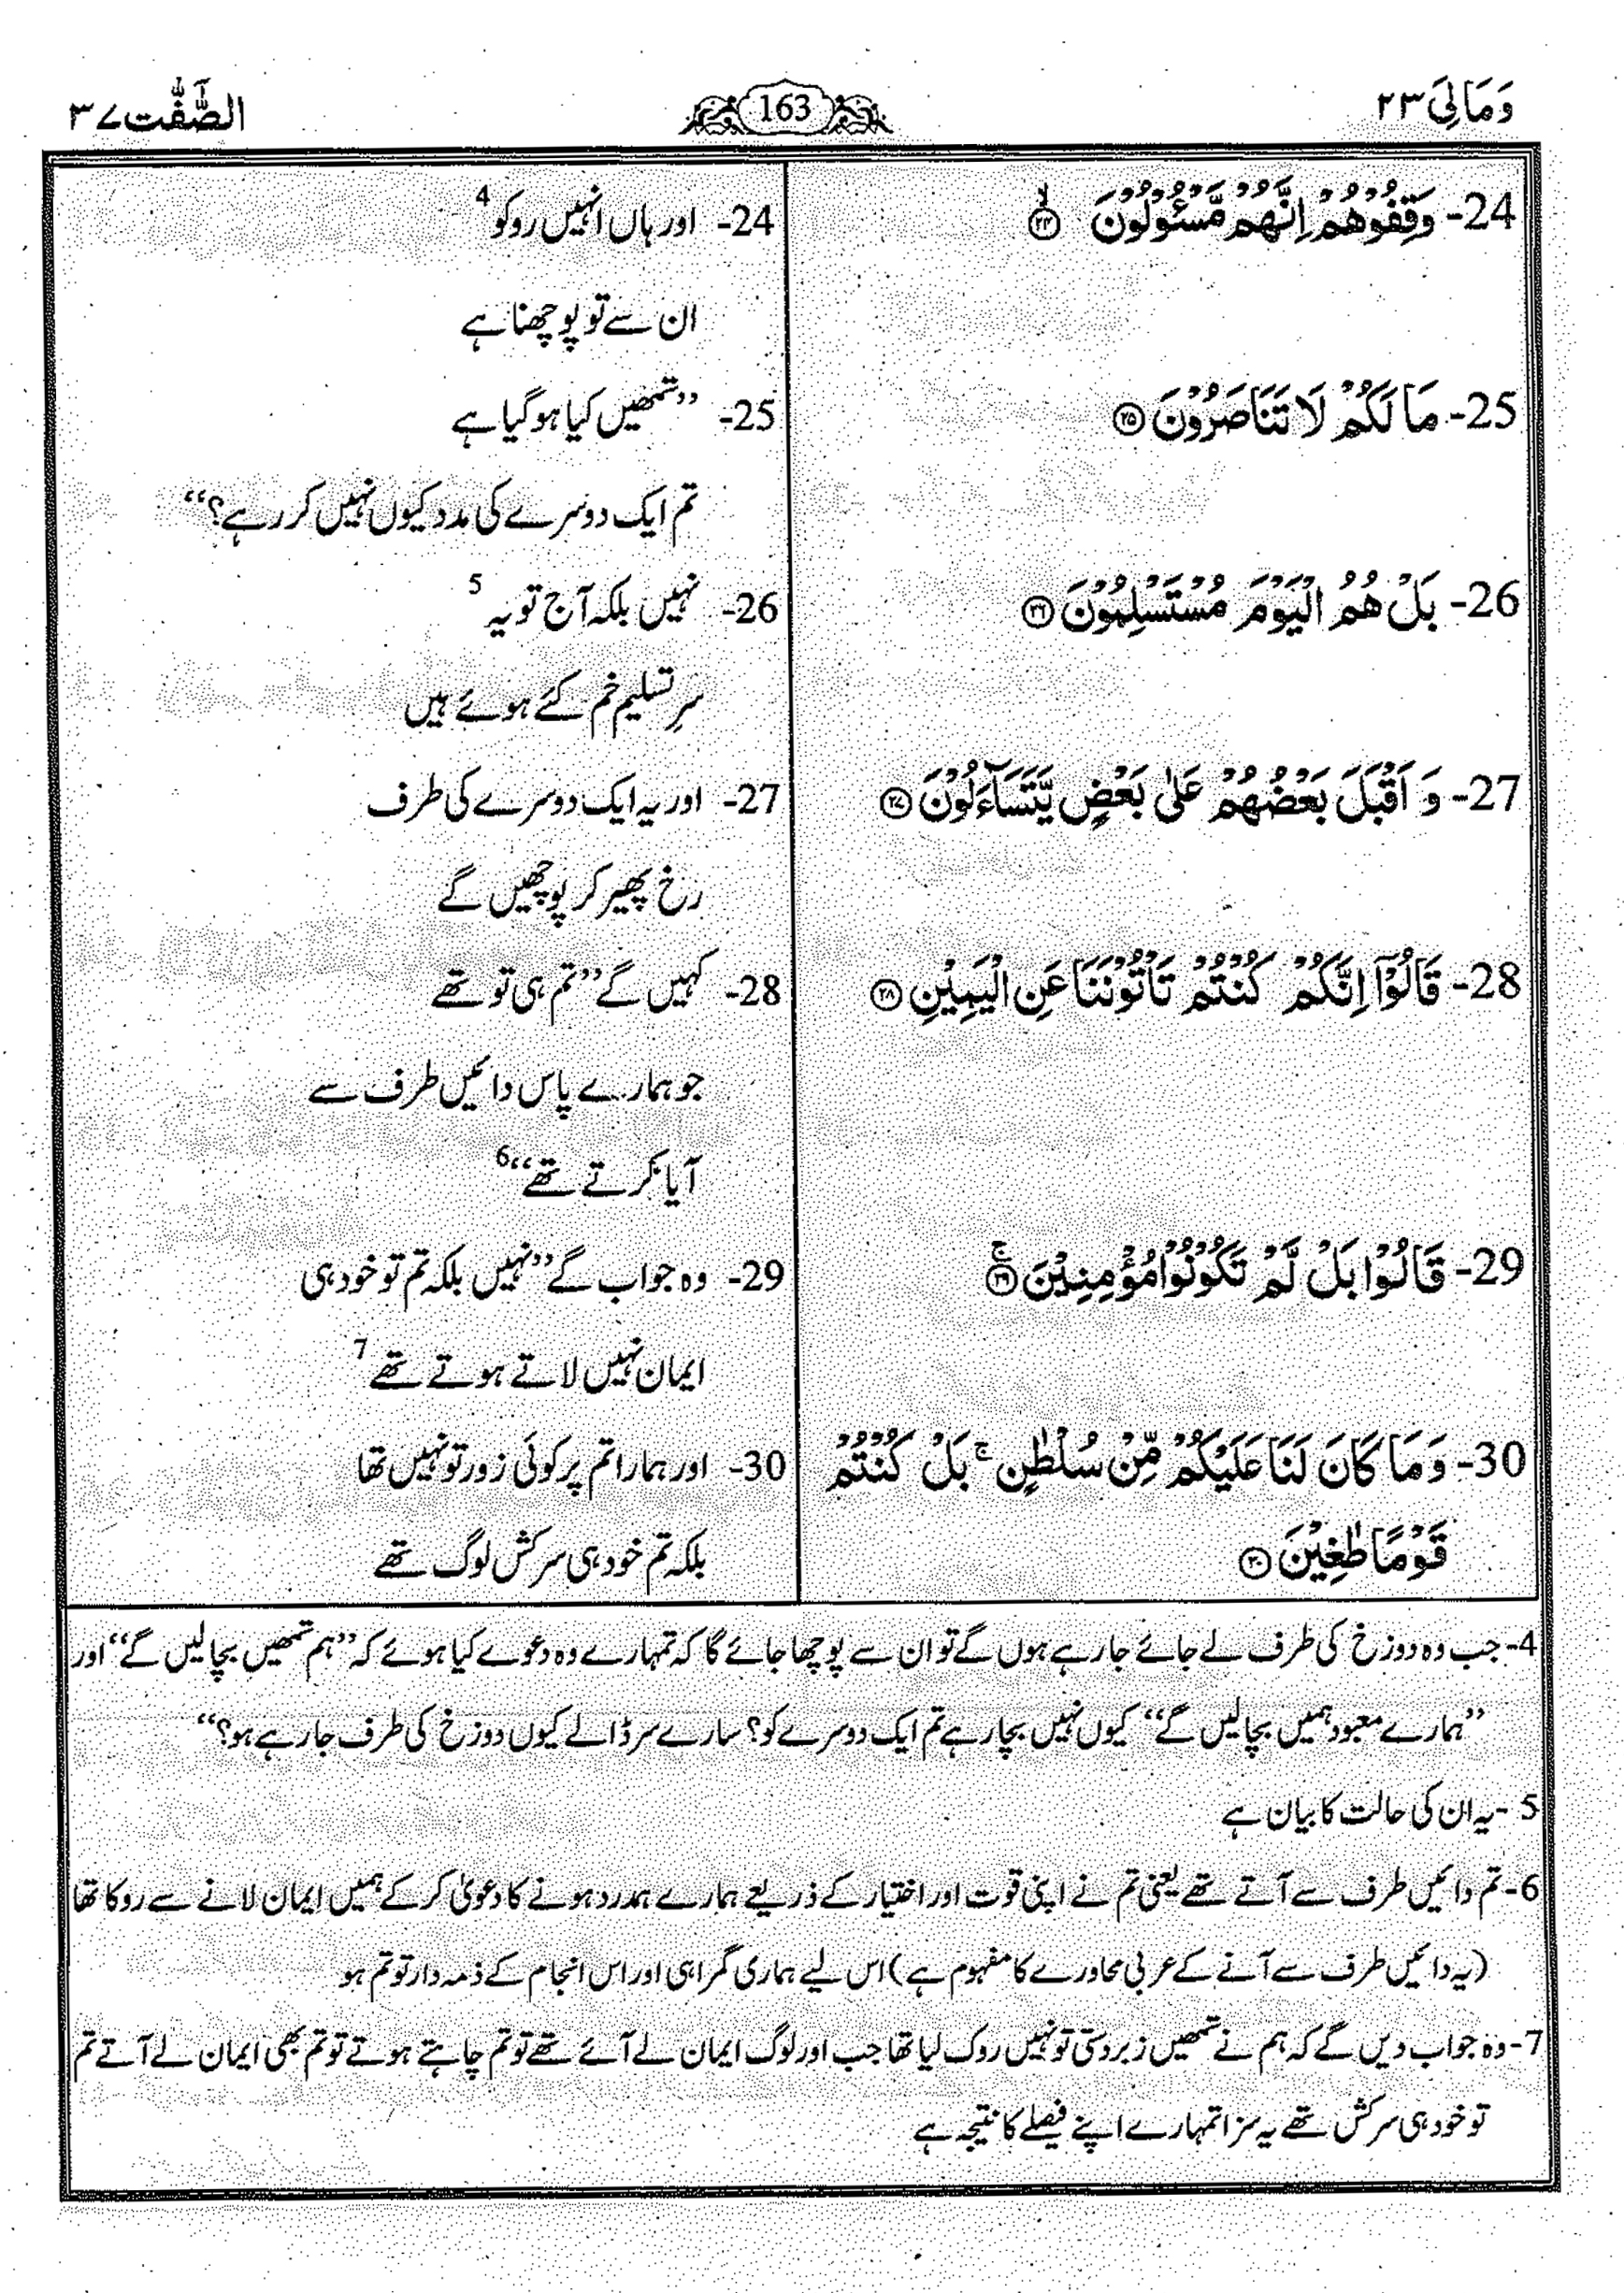 وَمَالِیَ ۲۳
163
الصّٰٓفّٰت ۳۷
24- وَقِفُوْهُمْ اِنَّهُمْ مَّسْـُٔوْلُوْنَ ۙ﴿۲۴﴾
24- اور ہاں انہیں روکو 4
ان سے تو پوچھنا ہے
25- مَا لَكُمْ لَا تَنَاصَرُوْنَ ﴿۲۵﴾
25- ’’تمھیں کیا ہو گیا ہے
تم ایک دوسرے کی مدد کیوں نہیں کر رہے؟‘‘
26- بَلْ هُمُ الْيَوْمَ مُسْتَسْلِمُوْنَ ﴿۲۶﴾
26- نہیں بلکہ آج تو یہ 5
سرِ تسلیم خم کئے ہوئے ہیں
27- وَ اَقْبَلَ بَعْضُهُمْ عَلٰى بَعْضٍ يَّتَسَآءَلُوْنَ ﴿۲۷﴾
27- اور یہ ایک دوسرے کی طرف
رخ پھیر کر پوچھیں گے
28- قَالُوْٓا اِنَّكُمْ كُنْتُمْ تَاْتُوْنَنَا عَنِ الْيَمِيْنِ ﴿۲۸﴾
28- کہیں گے ’’تم ہی تو تھے
جو ہمارے پاس دائیں طرف سے
آیا کرتے تھے‘‘ 6
29- قَالُوْا بَلْ لَّمْ تَكُوْنُوْا مُؤْمِنِيْنَ ۚ﴿۲۹﴾
29- وہ جواب گے ’’نہیں بلکہ تم تو خود ہی
ایمان نہیں لاتے ہوتے تھے 7
30- وَمَا كَانَ لَنَا عَلَيْكُمْ مِّنْ سُلْطٰنٍ ۚ بَلْ كُنْتُمْ
قَوْمًا طٰغِيْنَ ﴿۳۰﴾
30- اور ہمارا تم پر کوئی زور تو نہیں تھا
بلکہ تم خود ہی سرکش لوگ تھے
4- جب وہ دوزخ کی طرف لے جائے جا رہے ہوں گے تو ان سے پوچھا جائے گا کہ تمہارے وہ دعوے کیا ہوئے کہ ’’ہم تمھیں بچا لیں گے‘‘ اور
’’ہمارے معبود ہمیں بچا لیں گے‘‘ کیوں نہیں بچا رہے تم ایک دوسرے کو؟ سارے سر ڈالے کیوں دوزخ کی طرف جا رہے ہو؟‘‘
5- یہ ان کی حالت کا بیان ہے
6- تم دائیں طرف سے آتے تھے یعنی تم نے اپنی قوت اور اختیار کے ذریعے ہمارے ہمدرد ہونے کا دعویٰ کر کے ہمیں ایمان لانے سے روکا تھا
(یہ دائیں طرف سے آنے کے عربی محاورے کا مفہوم ہے) اس لیے ہماری گمراہی اور اس انجام کے ذمہ دار تو تم ہو
7- وہ جواب دیں گے کہ ہم نے تمھیں زبردستی تو نہیں روک لیا تھا جب اور لوگ ایمان لے آئے تھے تو تم چاہتے ہوتے تو تم بھی ایمان لے آتے تم
تو خود ہی سرکش تھے یہ سزا تمہارے اپنے فیصلے کا نتیجہ ہے